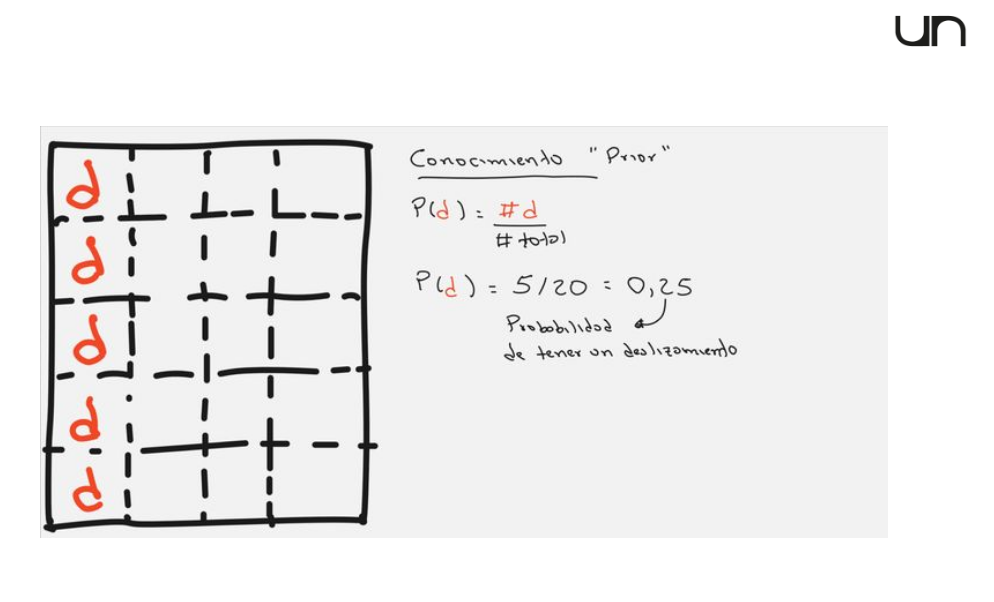 un
Conocimiento "Prior"
P(d) = #d
# total
P(d) = 5/20 = 0,25
Probabilidad
de tener un deslizamiento
d
d
d
d
d